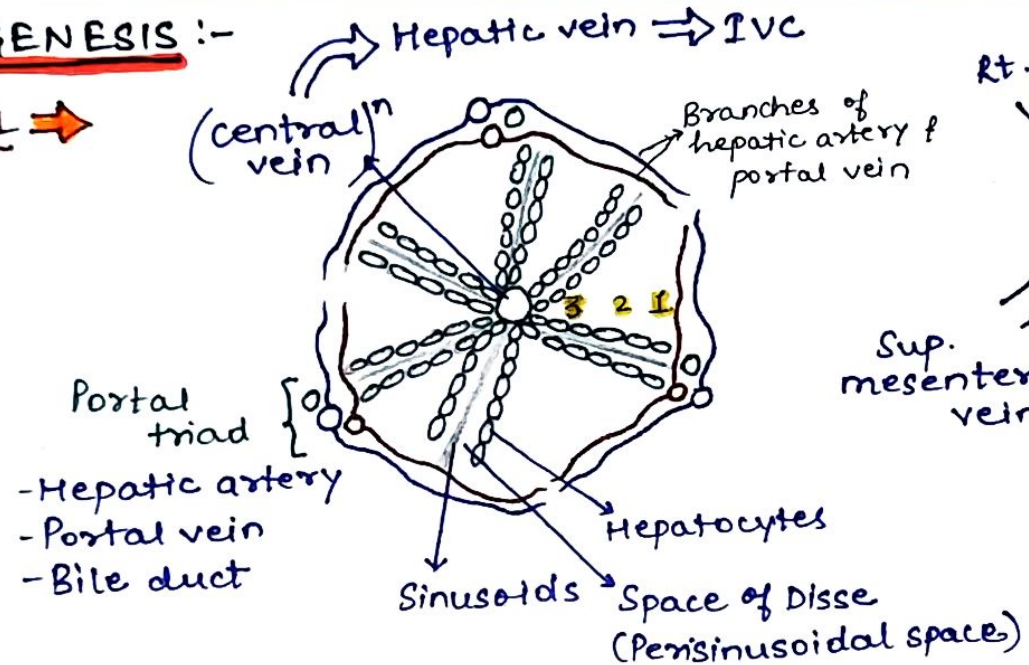 ENESIS :-
Hepatic vein ⇒ IVC
Rt.
(central)ⁿ
vein
Branches of
hepatic artery &
portal vein
3 2 1
Sup.
mesenter
vein
Portal
triad
- Hepatic artery
- Portal vein
- Bile duct
Hepatocytes
Sinusoids
Space of Disse
(Perisinusoidal space)